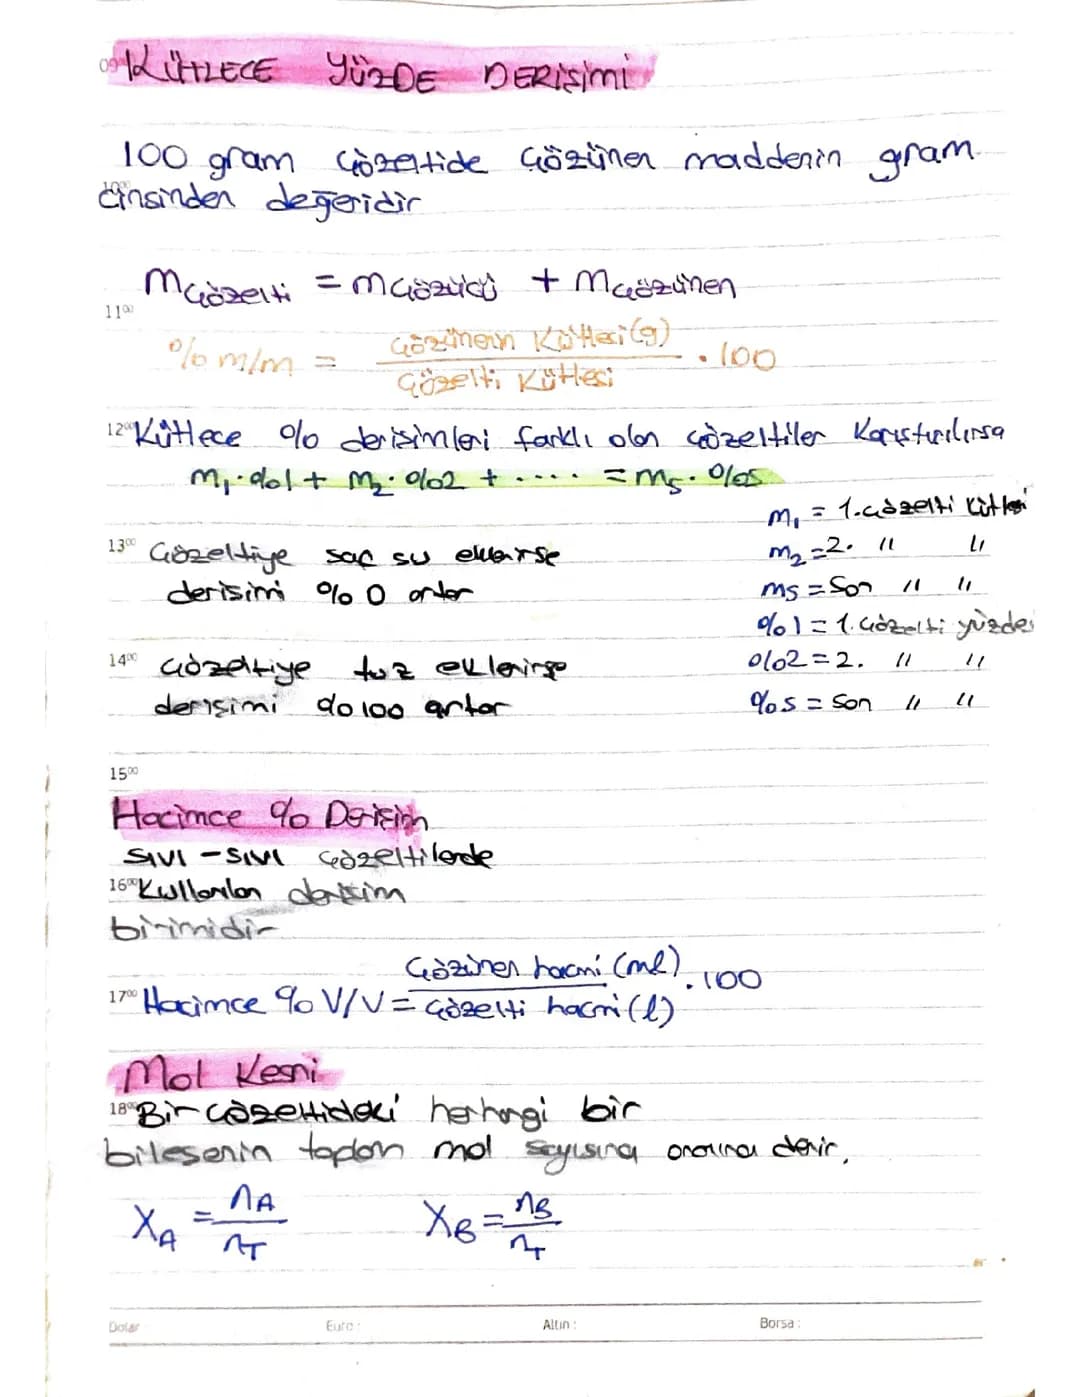 09 KÜTLECE YÜZDE DERİŞİMİ
100 gram çözeltide çözünen maddenin gram
10⁰⁰ cinsinden değeridir
mçözelti = mçözücü + mçözünen
11⁰⁰
% m/m = Çözünenin Kütlesi(g) / Çözelti Kütlesi . 100
12⁰⁰ Kütlece % derişimleri farklı olan çözeltiler Karıştırılırsa
m₁ . %1 + m₂ . %2 + .... = mₛ . %s
m₁ = 1. çözelti kütlesi
13⁰⁰ Çözeltiye saf su eklenirse
m₂ = 2. " "
derişimi % 0 artar
ms = Son " "
%1 = 1. çözelti yüzdesi
14⁰⁰ Çözeltiye tuz eklenirse
%2 = 2. " "
derişimi %100 artar
%s = Son " "
15⁰⁰
Hacimce % Derişim
SIVI - SIVI çözeltilerde
16⁰⁰ Kullanılan derişim
birimidir
17⁰⁰ Hacimce % V/V = Çözünen hacmi (ml) / Çözelti hacmi (l) . 100
Mol Kesri
18⁰⁰ Bir çözeltideki herhangi bir
bileşenin toplam mol sayısına oranına denir.
X_A = n_A / n_T X_B = n_B / n_T
Dolar Euro : Altın : Borsa :